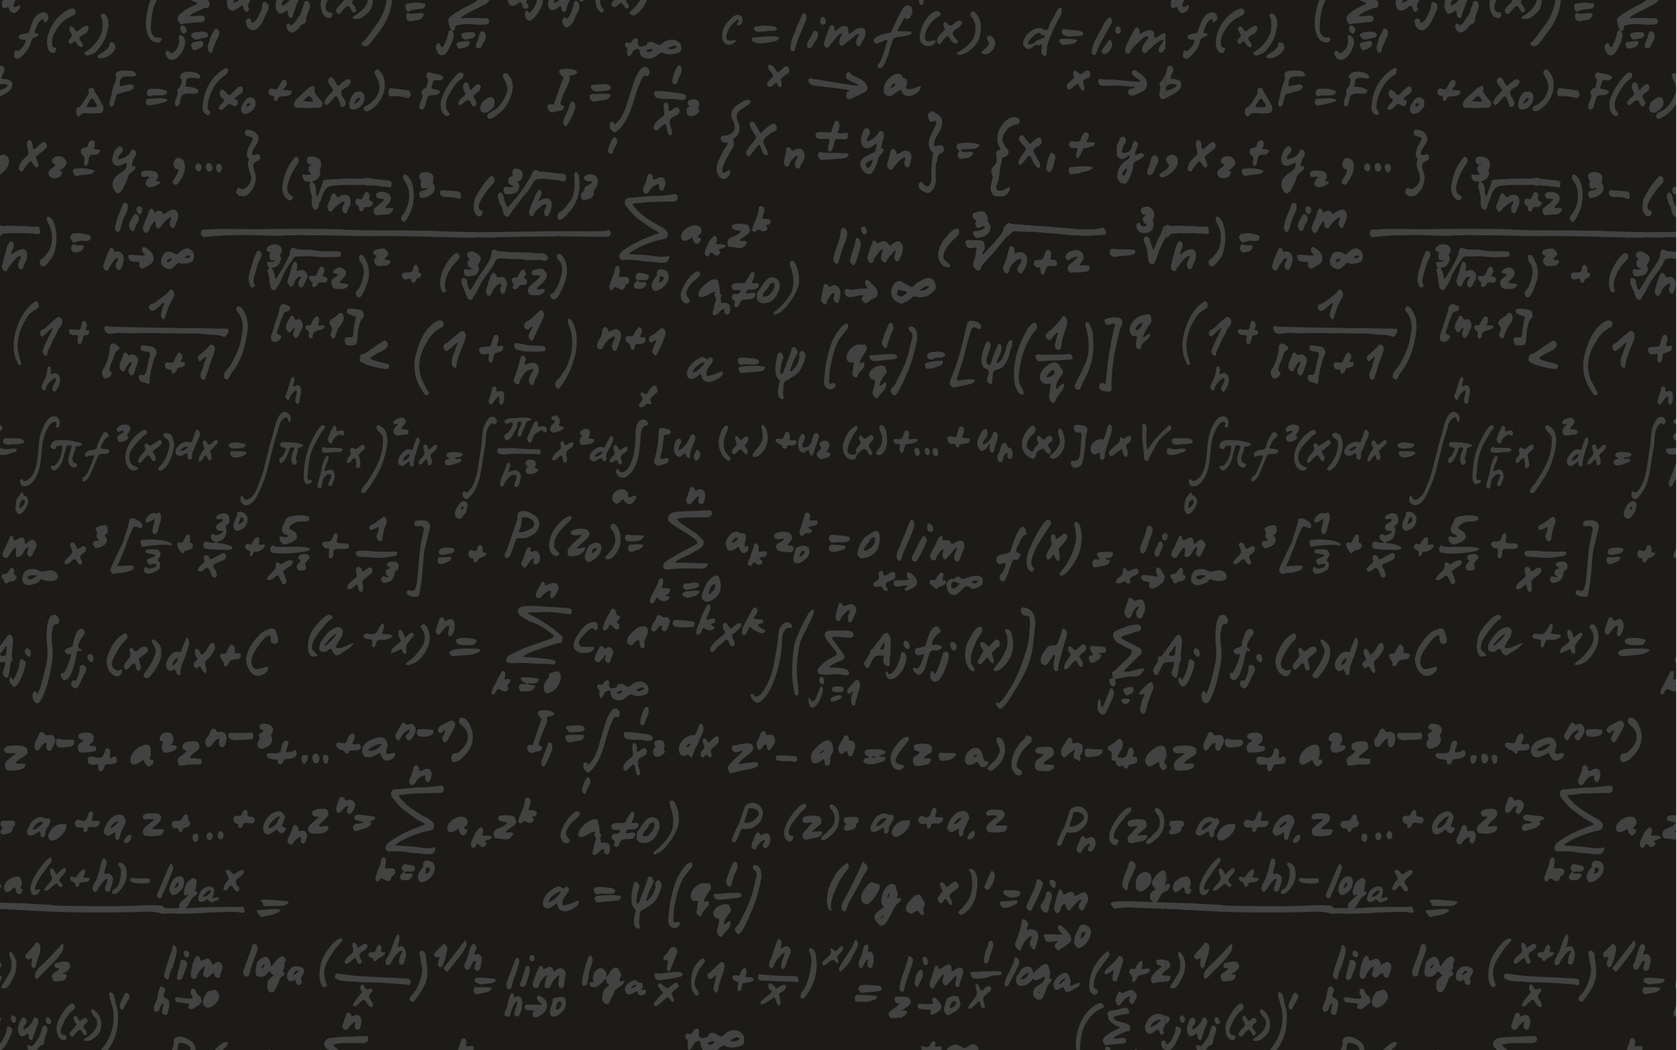 f(x), (∑ j=1 ajuj(x)) = ∑ j=1 ajuj(x) c = lim f(x), d = lim f(x), (∑ j=1 ajuj(x)) = ∑ j=1
x → a x → b
ΔF = F(x₀ + Δx₀) − F(x₀) I₁ = ∫₁^{+∞} 1/x³ ΔF = F(x₀ + Δx₀) − F(x₀)
x₂ ± y₂, ... } {xₙ ± yₙ} = {x₁ ± y₁, x₂ ± y₂, ... }
n) = lim n→∞ ((∛n+2)³ − (∛n)³) / ((∛n+2)² + (∛n+2)) ∑ₖ₌₀ⁿ aₖzᵏ (aₙ≠0) lim n→∞ (∛n+2 − ∛n) = lim n→∞ (∛n+2)³ − ( / (∛n+2)² + (∛n
(1 + 1/([n]+1))^{[n+1]} < (1 + 1/n)^{n+1} a = ψ (q 1/q) = [ψ(1/q)]^q (1 + 1/([n]+1))^{[n+1]} < (1 +
= ∫₀ʰ πf²(x)dx = ∫ʰ π(r/h x)²dx = ∫₀ʰ πr²/h² x²dx ∫ₐˣ [u₁(x) + u₂(x) + ... + uₙ(x)]dx V = ∫₀ʰ πf²(x)dx = ∫ʰ π(r/h x)²dx = ∫₀ʰ
m +∞ x³[1/3 + 30/x + 5/x² + 1/x³] = + Pₙ(z₀) = ∑ₖ₌₀ⁿ aₖz₀ᵏ = 0 lim x→+∞ f(x) = lim x→+∞ x³[1/3 + 30/x + 5/x² + 1/x³] = +
Aj∫fj(x)dx + C (a + x)ⁿ = ∑ₖ₌₀ⁿ Cₙᵏaⁿ⁻ᵏxᵏ ∫(∑ⁿ j=1 Ajfj(x))dx = ∑ⁿ j=1 Aj∫fj(x)dx + C (a + x)ⁿ =
zⁿ⁻² + a²zⁿ⁻³ + ... + aⁿ⁻¹) I₁ = ∫₁^{+∞} 1/x³ dx zⁿ − aⁿ = (z − a)(zⁿ⁻¹ + azⁿ⁻² + a²zⁿ⁻³ + ... + aⁿ⁻¹)
= a₀ + a₁z + ... + aₙzⁿ = ∑ₖ₌₀ⁿ aₖzᵏ (aₙ≠0) Pₙ(z) = a₀ + a₁z Pₙ(z) = a₀ + a₁z + ... + aₙzⁿ = ∑ₖ₌₀ⁿ aₖ
a(x+h) − logₐx = a = ψ(q 1/q) (logₐx)' = lim h→0 (logₐ(x+h) − logₐx) / =
)^{1/z} lim h→0 logₐ((x+h)/x)^{1/h} = lim h→0 logₐ 1/x (1 + h/x)^{x/h} = lim z→0 1/x logₐ(1+z)^{1/z} lim h→0 logₐ((x+h)/x)^{1/h} =
juj(x))' n +∞ (∑ⁿ ajuj(x))' n